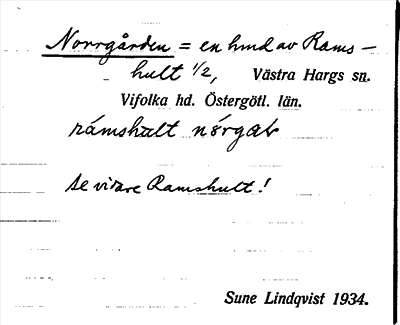 Norrgården = en hmd av Rams–
hult 1/2, Västra Hargs sn.
Vifolka hd. Östergötl. län.
rámshult nórgaŀ
se vidare Ramshult!
Sune Lindqvist 1934.